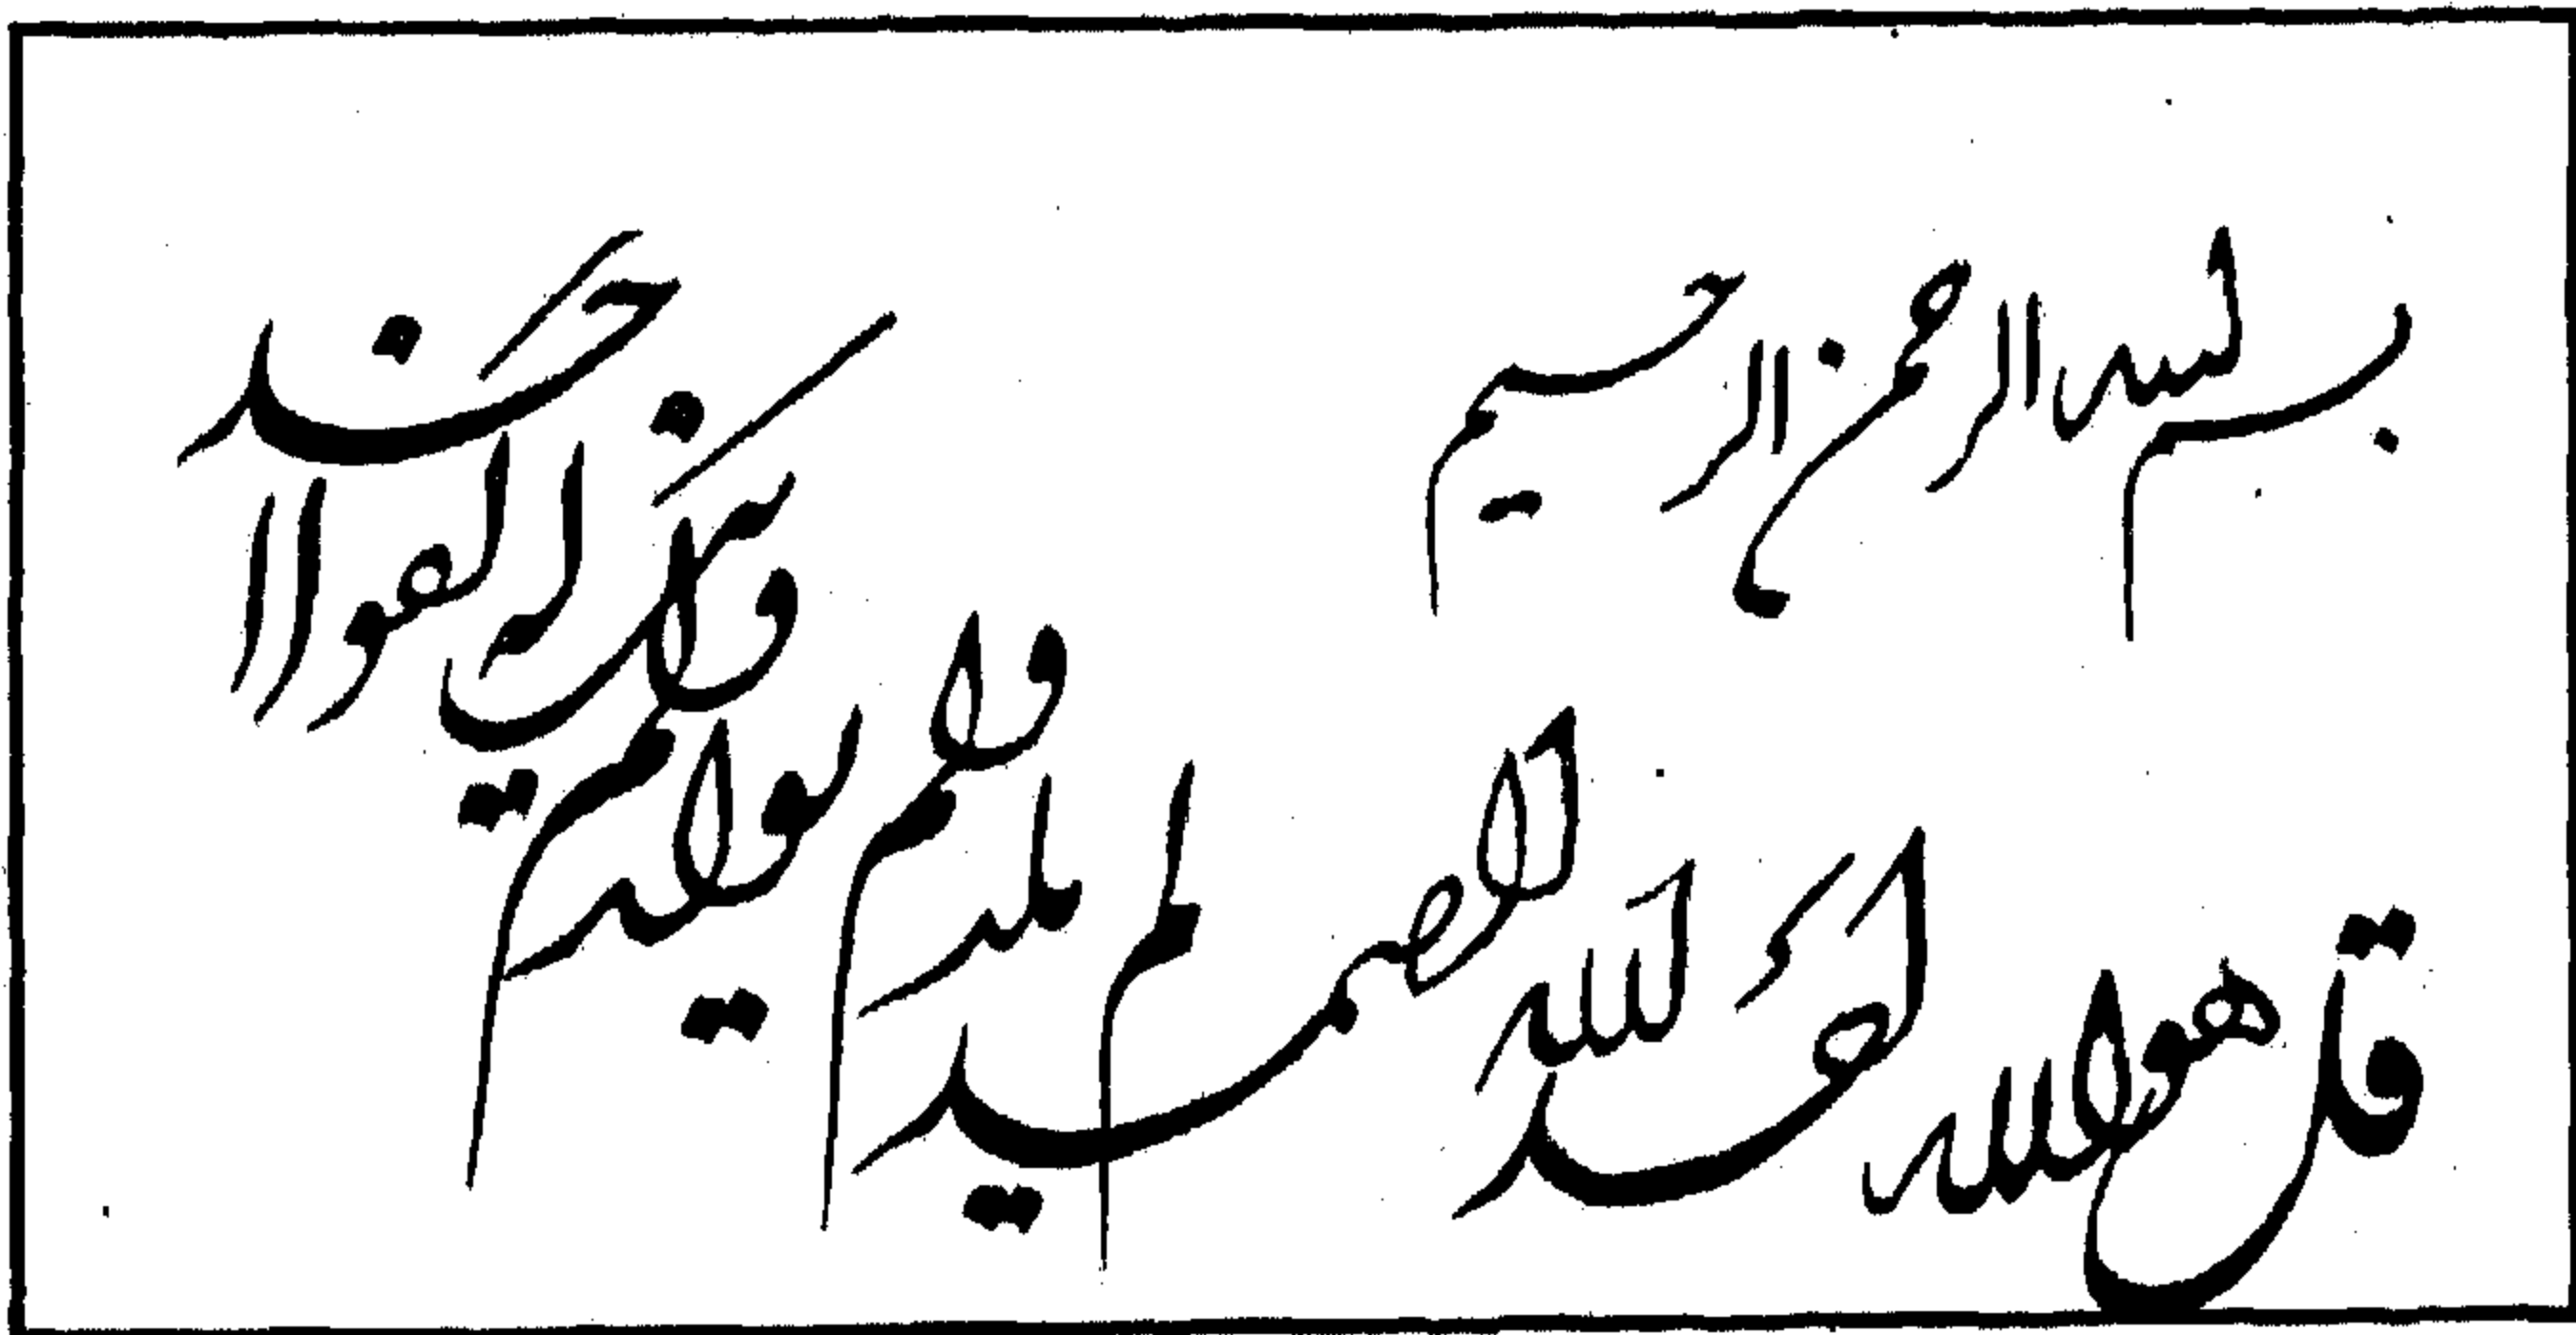 بسم الله الرحمن الرحیم
قل هو الله احد الله الصمد لم یلد ولم یولد ولم یکن له کفوا احد